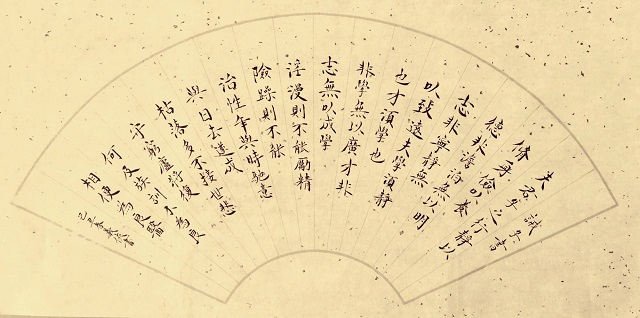 誡子書
夫君子之行靜以
修身儉以養
德非澹泊無以明
志非寧靜無
以致遠夫學須靜
也才須學也
非學無以廣才非
志無以成學
淫漫則不能勵精
險躁則不能
治性年與時馳意
與日去遂成
枯落多不接世悲
守窮廬將復
何及 族訓 不為良
相便為良醫